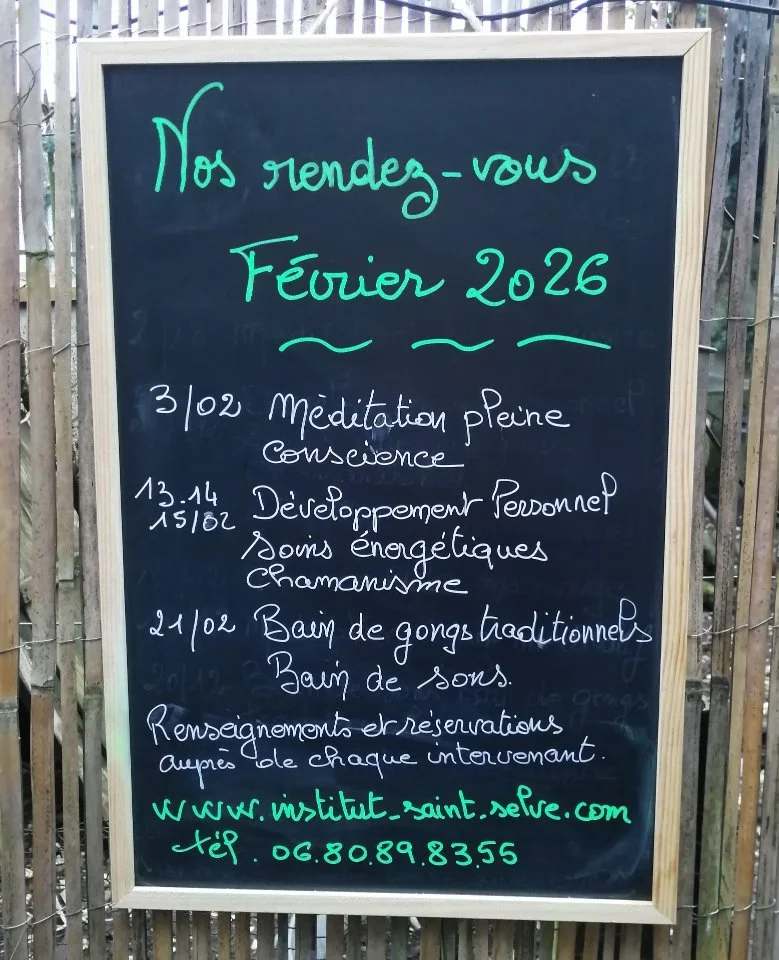 Nos rendez-vous
Février 2026
3/02 Méditation pleine
conscience
13.14 Développement Personnel
15/02
soins énergétiques
chamanisme
21/02 Bain de gongs traditionnels
Bain de sons.
Renseignements et réservations
auprès de chaque intervenant.
www.institut-saint-selve.com
tél. 06.80.89.83.55